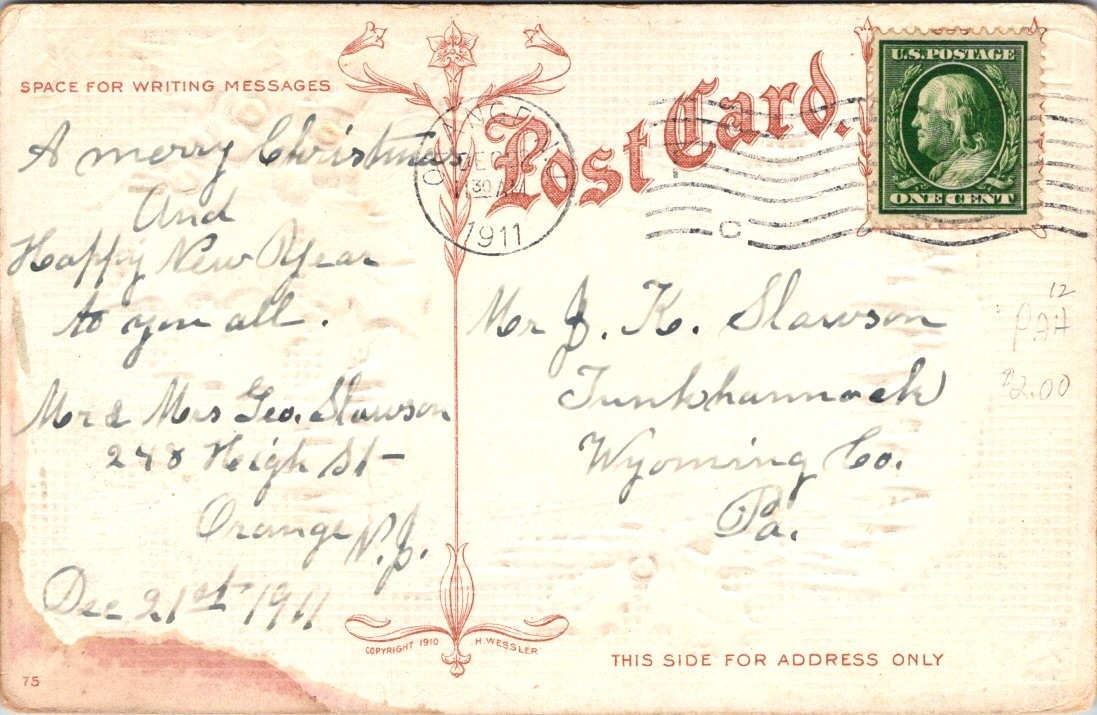 SPACE FOR WRITING MESSAGES
Post Card.
U.S. POSTAGE
ONE CENT
ORANGE, N.J.
DEC
30 AM
1911
C
A merry Christmas
And
Happy New Year
to you all.
Mr & Mrs Geo. Slawson
248 High St
Orange N.J.
Dec 21st 1911
Mr J. K. Slawson
Tunkhannock
Wyoming Co.
Pa.
12
PAH
$2.00
COPYRIGHT 1910 H. WESSLER
THIS SIDE FOR ADDRESS ONLY
75